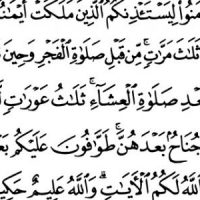 مَنُوا۟ لِيَسْتَـْٔذِنكُمُ ٱلَّذِينَ مَلَكَتْ أَيْمَـٰنُ
ثَلَـٰثَ مَرَّٰتٍ ۚ مِّن قَبْلِ صَلَوٰةِ ٱلْفَجْرِ وَحِينَ
عْدِ صَلَوٰةِ ٱلْعِشَآءِ ۚ ثَلَـٰثُ عَوْرَٰتٍ لَّ
جُنَاحٌۢ بَعْدَهُنَّ ۚ طَوَّٰفُونَ عَلَيْكُم بَعْ
ٱللَّهُ لَكُمُ ٱلْـَٔايَـٰتِ ۗ وَٱللَّهُ عَلِيمٌ حَكِي